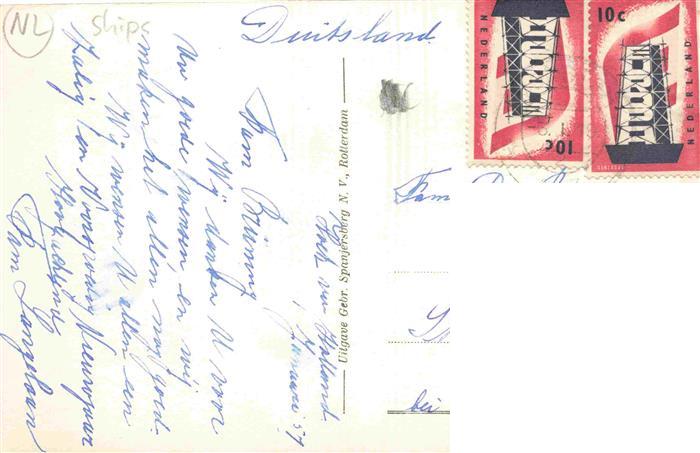 NL
ships
Duitsland
Hoek van Holland
Januari 57
Fam Brüning
Wij danken U voor
Uw goede wensen en wij
maken het allen nog goed.
Wij wensen U allen een
Zalig en Voorspoedig Nieuwjaar
Hoogachtend
Fam Langelaan
Uitgave Gebr. Spanjersberg N. V., Rotterdam
Fam
bei
NEDERLAND
EUROPA
10c
10c
EUROPA
NEDERLAND